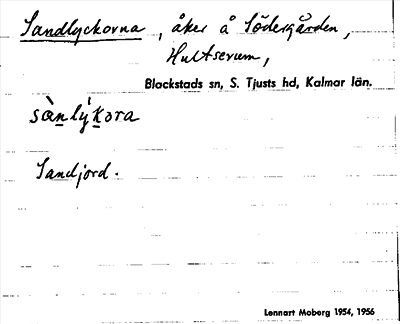 Sandlyckorna, åker å Södergården,
Hultserum,
Blackstads sn, S. Tjusts hd, Kalmar län.
sànlýkora
Sandjord.
Lennart Moberg 1954, 1956